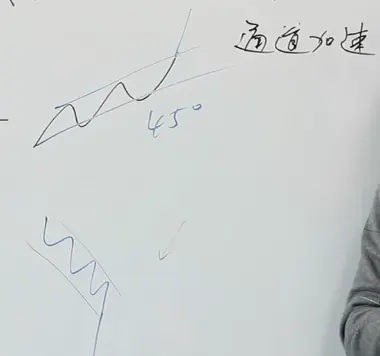 通道加速
45°